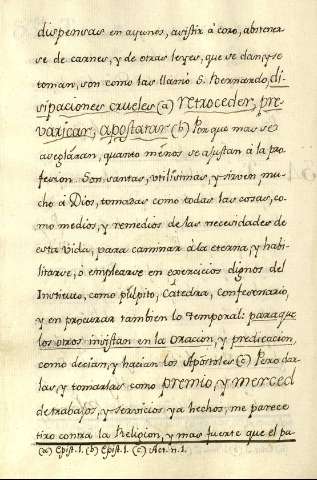 dispensas en ayunos, asistir à coro, abstener
se de carnes, y de otras leyes, que se dan, y se
toman, son como las llamó S. Bernardo, di
sipaciones crueles (a) retroceder, pre-
varicar, apostatar (b) Porque mas se
arreglàran, quanto ménos se ajustan á la pro
fesion. Son santas, utilísimas, y sirven mu
cho à Dios, tomadas como todas las cosas, co
mo medios, y remedios de las necesidades de
esta vida, para caminar à la eterna, y habi
litarse, ò emplearse en exercicios dignos del
Instituto, como púlpito, Cátedra, Confesonario,
y en procurar tambien lo temporal: para que
los otros insistan en la Oracion, y predicacion,
como decian, y hacian los Apóstoles (c) Pero dar
las, y tomarlas como premio, y merced
de trabajos, y servicios ya hechos, me parece
tiro contra la Religion, y mas fuerte que el pa
(a) Epist. 1. (b) Epist. 1. (c) Act. n. 1.